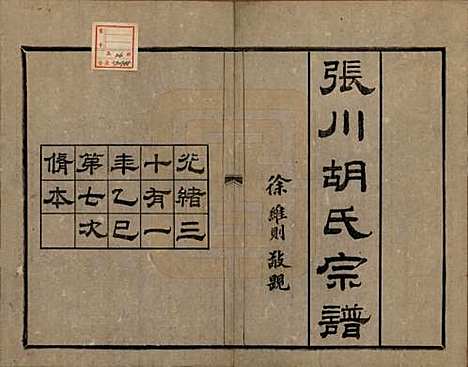 張川胡氏宗譜
徐維則敬題
光緒三
十有一
年乙巳
第七次
脩本